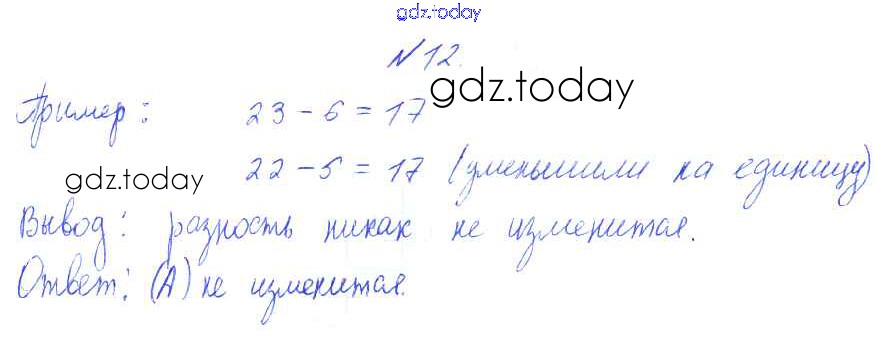 gdz.today
№12.
gdz.today
Пример: 23 - 6 = 17
22 - 5 = 17 (уменьшили на единицу)
gdz.today
Вывод: разность никак не изменится.
Ответ: (А) не изменится.